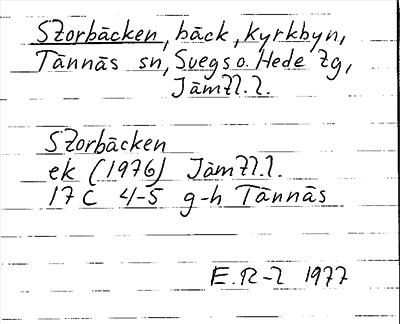 Storbäcken, bäck, Kyrkbyn,
Tännäs sn, Svegs o. Hede tg,
Jämtl.l.
Storbäcken
ek (1976) Jämtl.l.
17 C 4-5 g-h Tännäs
E.R-l 1977